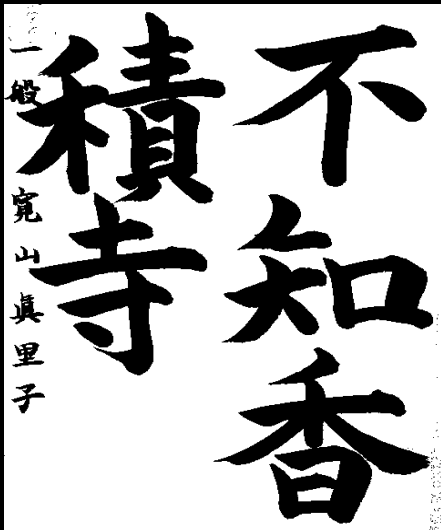 不知香
積寺
一般 寛山眞里子